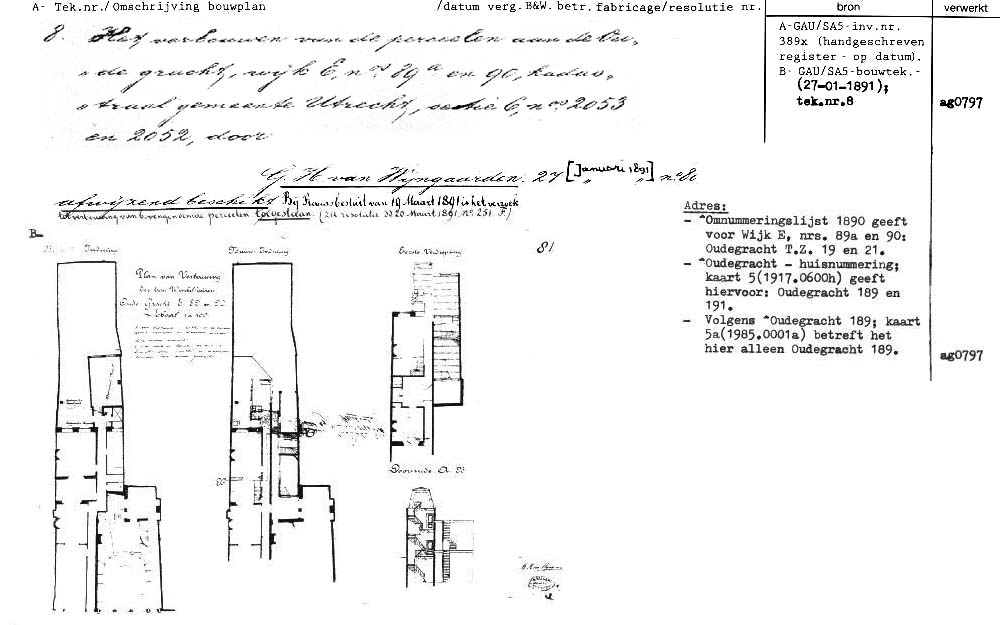 A- Tek.nr./Omschrijving bouwplan /datum verg.B&W. betr. fabricage/resolutie nr. bron verwerkt
8. Het verbouwen van de perceelen aan de Ou,
de gracht, wijk E, nos 89a en 90, kadas,
traal gemeente Utrecht, sectie C, nos 2053
en 2052, door
G. H. van Wijngaarden. 27 [Januari 1891] no 8
afwijzend beschikt Bij Raadsbesluit van 19 Maart 1891 is het verzoek
tot verbouwing van bovengenoemde perceelen toegestaan (zie resolutie dd 20 Maart 1891, no. 251 F.)
A-GAU/SA5-inv.nr.
389x (handgeschreven
register - op datum).
B- GAU/SA5-bouwtek.-
(27-01-1891);
tek.nr.8 ag0797
Adres:
- ^Omnummeringslijst 1890 geeft
voor Wijk E, nrs. 89a en 90:
Oudegracht T.Z. 19 en 21.
- ^Oudegracht - huisnummering;
kaart 5(1917.0600h) geeft
hiervoor: Oudegracht 189 en
191.
- Volgens ^Oudegracht 189; kaart
5a(1985.0001a) betreft het
hier alleen Oudegracht 189.
ag0797
B-
81
Plan van Verbouwing
Oude Gracht E. 89 en 90
Schaal 1 à 100
Eerste Verdieping
Doorsnede A B